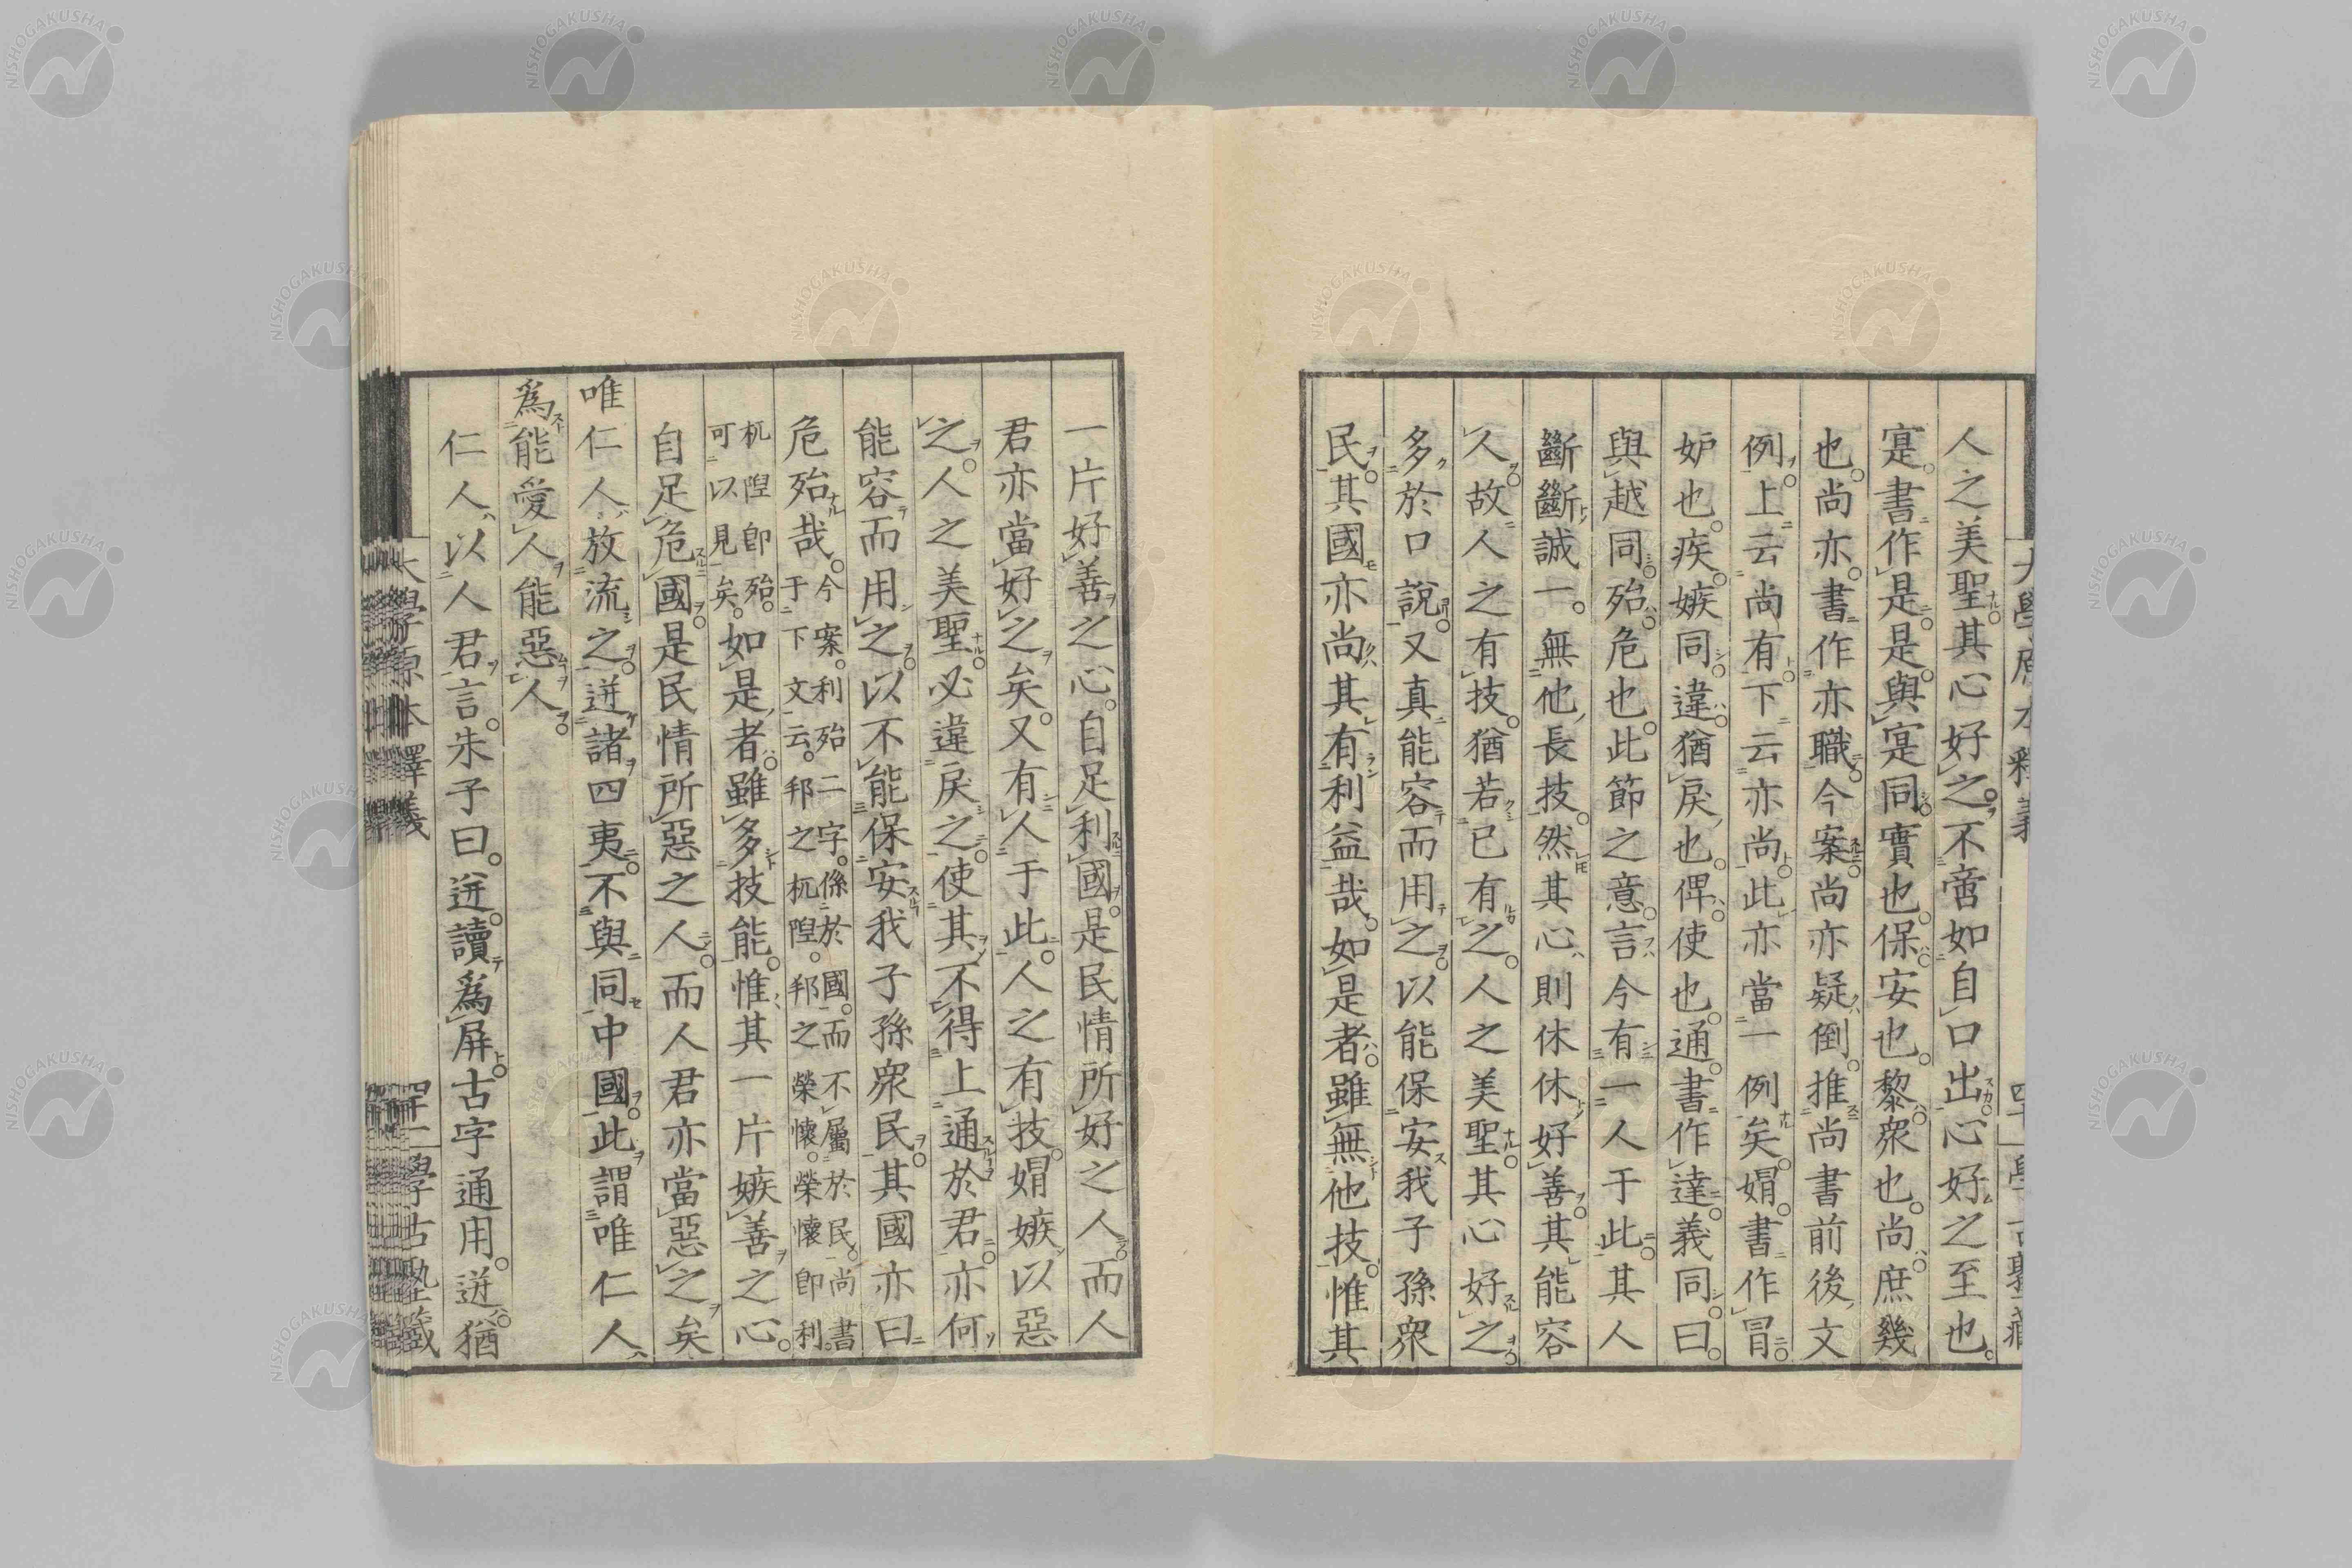 人之美聖其心好之。不啻如自口出。心好之至也。
寔。書作是。是與寔同。實也。保安也。黎衆也。尚庶幾
也。尚亦。書作亦職。今案。尚亦疑倒。推尚書前後文
例。上云尚有。下云亦尚。此亦當一例矣。媢。書作冒。
妒也。疾。嫉同。違。猶戾也。俾。使也。通。書作達。義同。曰。
與越同。殆。危也。此節之意。言今有一人于此。其人
斷斷誠一。無他長技。然其心則休休好善。其能容
人。故人之有技。猶若已有之。人之美聖。其心好之。
多於口說。又真能容而用之。以能保安我子孫衆
民。其國亦尚其有利益哉。如是者。雖無他技。惟其
一片好善之心。自足利國。是民情所好之人。而人
君亦當好之矣。又有人于此。人之有技。媢嫉以惡
之。人之美聖。必違戾之。使其不得上通於君。亦何
能容而用之。以不能保安我子孫衆民。其國亦曰
危殆哉。今案。利殆二字。係於國。而不屬於民。尚書
于下文云。邦之杌隉。邦之榮懷。榮懷即利。
杌隉即殆。
可以見矣。如是者。雖多技能。惟其一片嫉善之心。
自足危國。是民情所惡之人。而人君亦當惡之矣
唯仁人。放流之。迸諸四夷。不與同中國。此謂唯仁人
為能愛人能惡人。
仁人。以人君言。朱子曰。迸。讀爲屏。古字通用。迸。猶
大學原本釋義
學古塾藏